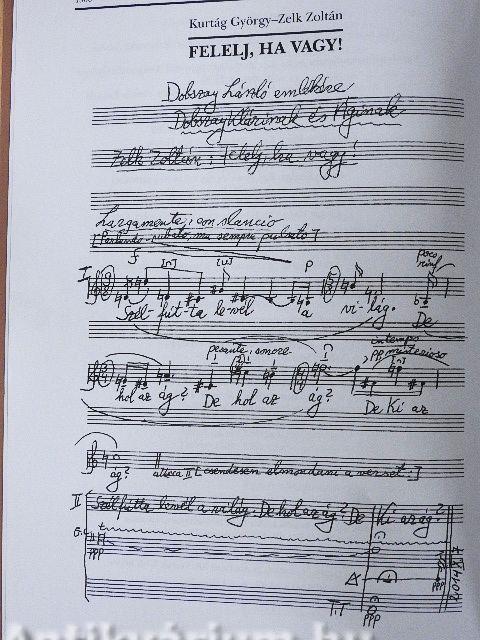 Kurtág György–Zelk Zoltán
FELELJ, HA VAGY!
Dobszay László emlékére
Dobszay Klárinak és Áginak
Zelk Zoltán: Felelj, ha vagy!
Largamente, con slancio
[Parlando-rubato, ma sempre pulsato]
f
p
poco
I
Szél- fút-ta le-vél a vi-lág. De
pesante, sonore
in tempo
pp misterioso
hol az ág? De hol az ág? De Ki az
ág? attacca II [csendesen elmondani a verset:]
II
Szélfútta levél a világ. De hol az ág? De Ki az ág?
ppp
ppp
T.T
ppp